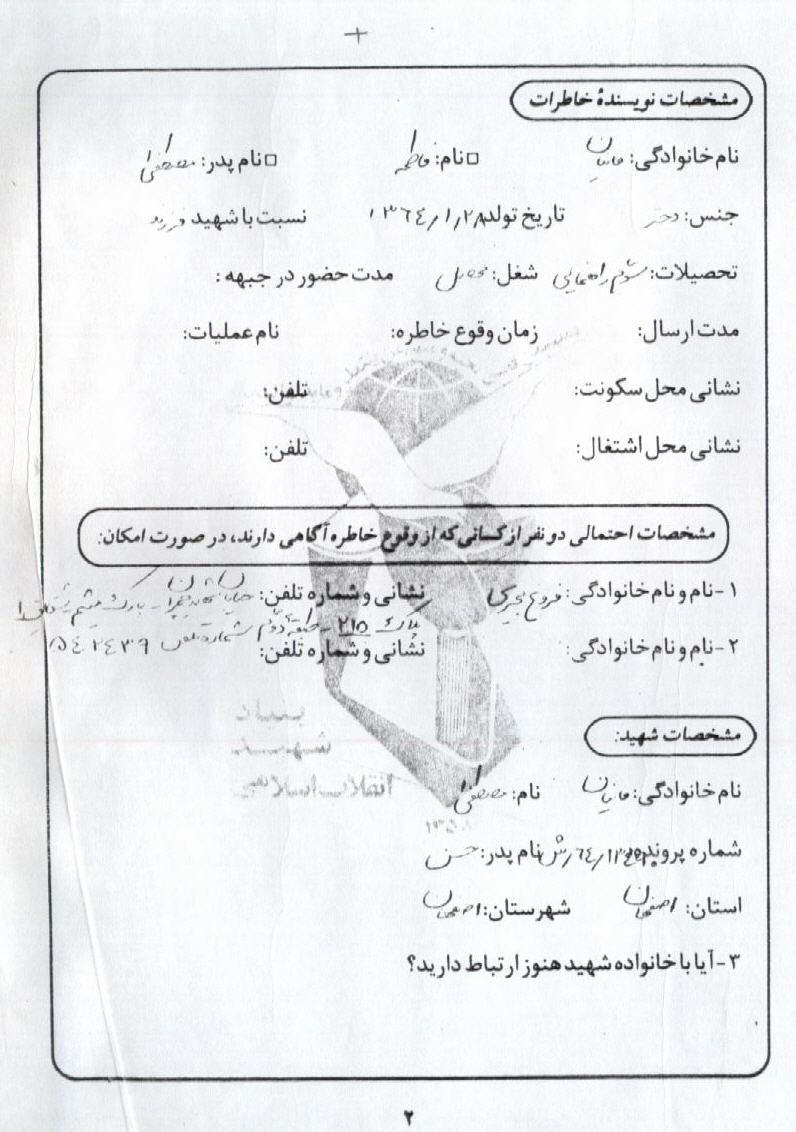 مشخصات نویسندهٔ خاطرات
نام خانوادگی: مانیان □نام: فاطمه □نام پدر: مصطفی
جنس: دختر تاریخ تولد ۱۳۶۴/۱/۲۸ نسبت با شهید فرزند
تحصیلات: سوم راهنمایی شغل: محصل مدت حضور در جبهه:
مدت ارسال: زمان وقوع خاطره: نام عملیات:
نشانی محل سکونت: تلفن:
نشانی محل اشتغال: تلفن:
مشخصات احتمالی دو نفر از کسانی که از وقوع خاطره آگاهی دارند، در صورت امکان:
۱-نام و نام خانوادگی: فروغ نشانی و شماره تلفن: خیابان
پلاک ۲۱۵ - طبقه دوم شماره تلفن ۵۴۲۴۳۹
۲-نام و نام خانوادگی: نشانی و شماره تلفن:
بنیاد
شهید
انقلاب اسلامی
مشخصات شهید:
نام خانوادگی: مانیان نام: مصطفی
شماره پرونده: نام پدر: حسن
استان: اصفهان شهرستان: اصفهان
۳-آیا با خانواده شهید هنوز ارتباط دارید؟
۲